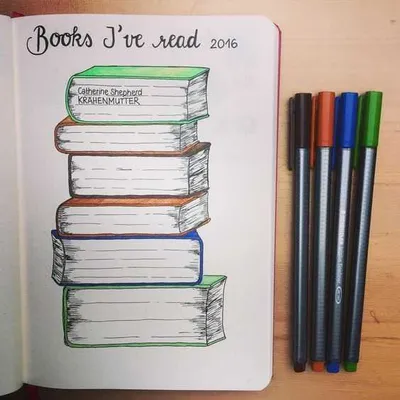 Books I've read 2016
Catherine Shepherd
KRÄHENMUTTER